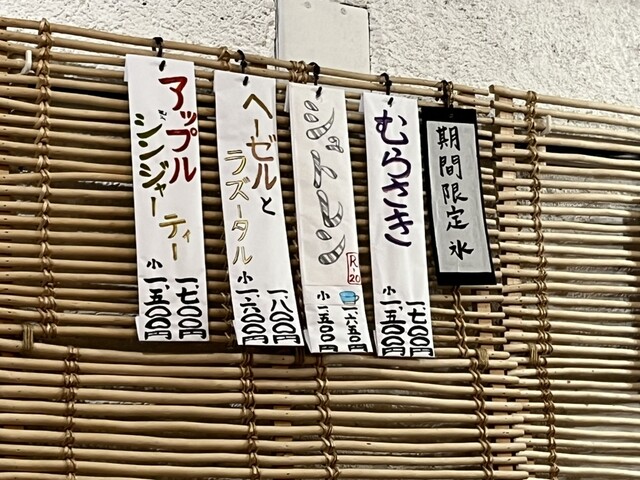 期間限定氷
むらさき
一、七〇〇円
小 一、五〇〇円
シュトレン
R-20
一、六五〇円
小 一、五〇〇円
ヘーゼルと
ラズータル
一、八〇〇円
小 一、六〇〇円
アップル
ジンジャーティー
一、七〇〇円
小 一、五〇〇円